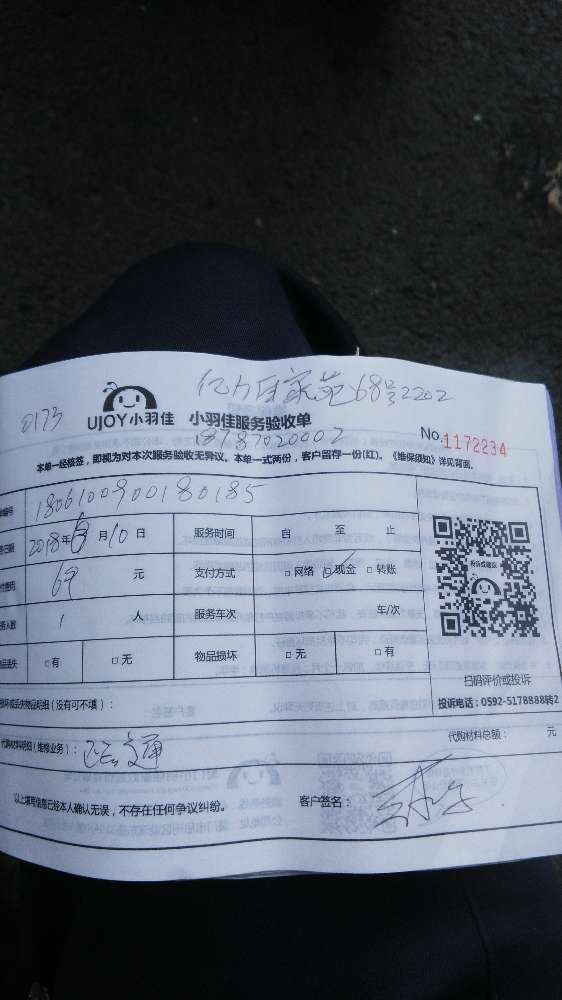 亿力百家苑68号2202
0173
UJOY小羽佳 小羽佳服务验收单
18187020002
No.1172234
本单一经核签，即视为对本次服务验收无异议。本单一式两份，客户留存一份(红)。《维保须知》详见背面。
编号 1806100900180185
日期 2018年 月10日 服务时间 自 至 止
69 元 支付方式 □网络 □现金 □转账
人数 1 人 服务车次 车/次
物品丢失 □有 □无 物品损坏 □无 □有
投诉或建议
扫码评价或投诉
投诉电话：0592-5178888转2
物品明细(没有可不填)：
代购材料明细(维修业务)： 疏通
代购材料总额： 元
以上填写信息已经本人确认无误，不存在任何争议纠纷。
客户签名：